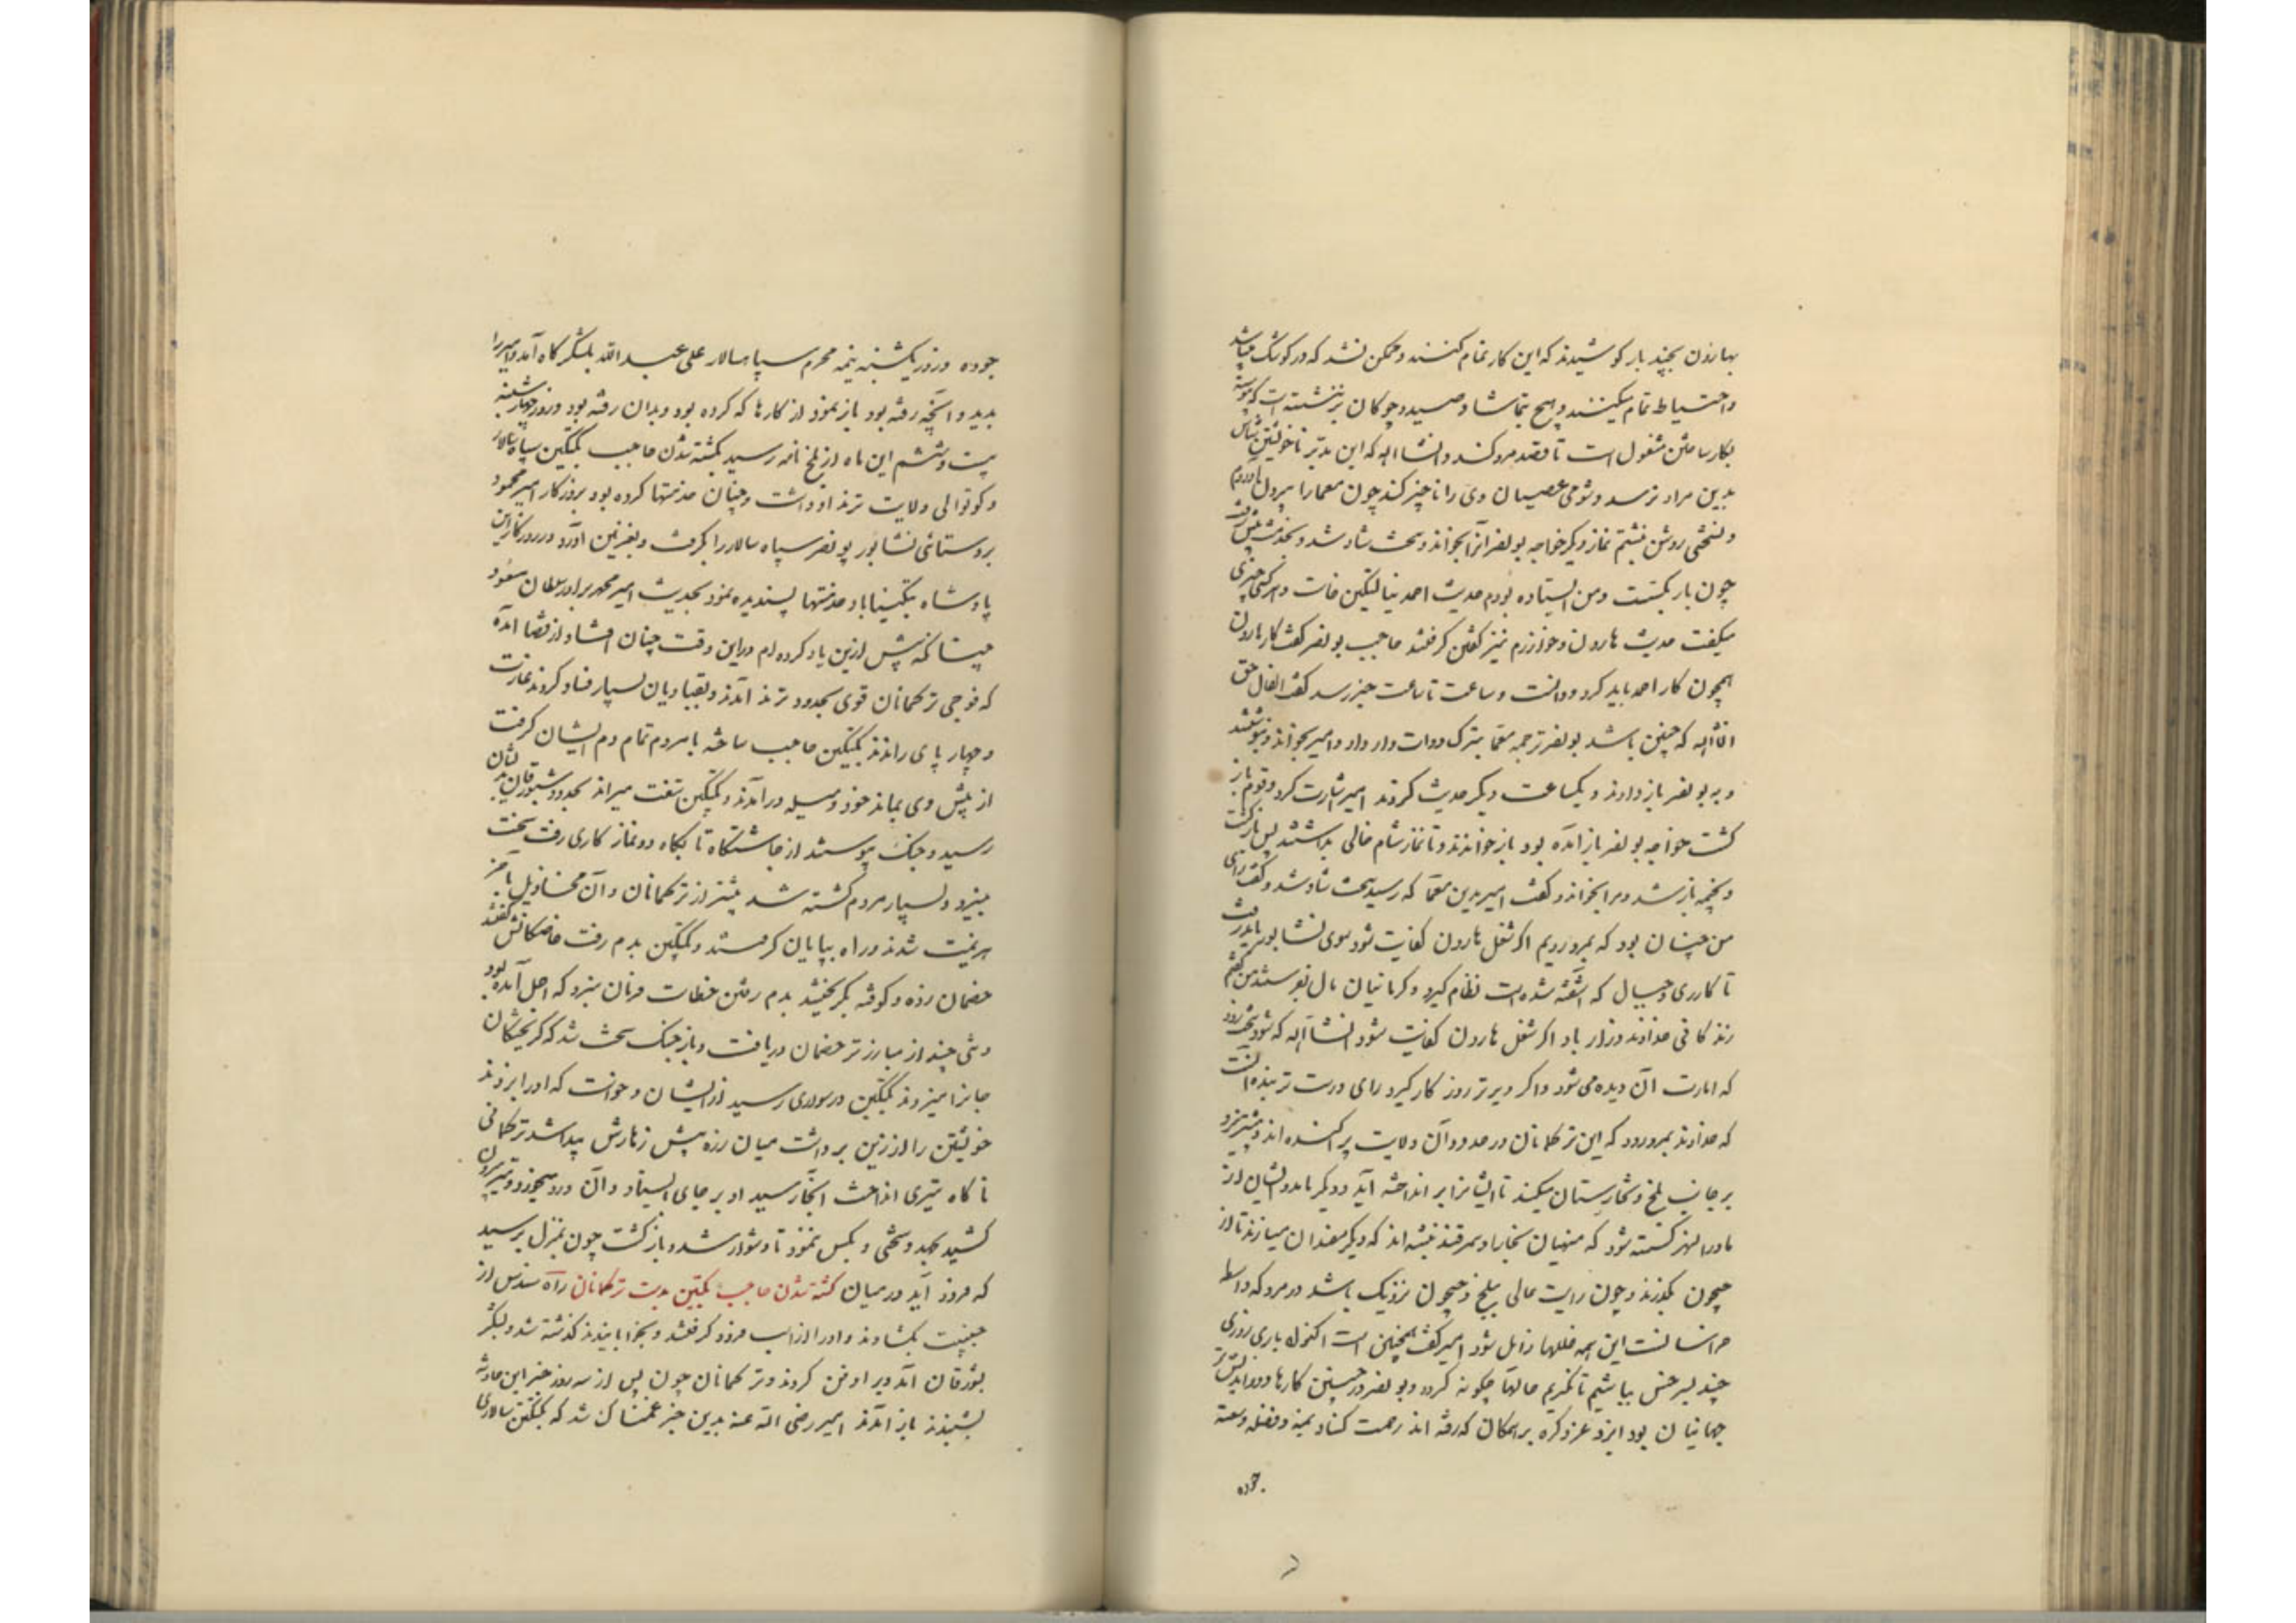 بهارون بچند بار کوشیدند که این کار تمام کنند و ممکن نشد که در کوشک میباشد
واحتیاط تمام میکنند و هیچ بتماشا و صید و چوکان برننشسته است که پیوسته
بکار ساختن مشغول است تا قصد مرو کند و انشاالله که این مدبر ناخویشتن شناس
بدین مراد نرسد و شومی عصیان وی را ناچیز کند چون معما را بیرون آوردم
و نسختی روشن نبشتم نماز دیکر خواجه بونصر آنرا بخواند و سخت شاد شد و بخدمت پیش رفت
چون بار بکسست و من ایستاده بودم حدیث احمد ینالتکین خاست و هر کسی چیزی
میکفت حدیث هارون و خوارزم نیز کفتن کرفتند حاجب بونصر کفت کار هارون
همچون کار احمد باید کرد و دانست و ساعت تا ساعت خبر رسد کفت الفال حق
انشاالله که چنین باشد بونصر ترجمه معما بترک دوات دار داد و امیر بخواند و بنوشتند
و به بونصر باز دادند و یکساعت دیکر حدیث کردند امیر اشارت کرد و قوم باز
کشت خواجه بونصر باز آمده بود باز خواندند و تا نماز شام خالی بداشتند پس بازکشت
و بخیمه باز شد و مرا بخواند و کفت امیر بدین معما که رسید سخت شاد شد و کفت رای
من چنان بود که بمرو رویم اکر شغل هارون کفایت شود سوی نشابور باید رفت
تا کار ری و جبال که آشفته شده است نظام کیرد و کرکانیان مال بفرستند من کفتم
زندکانی خداوند دراز باد اکر شغل هارون کفایت شود انشاالله که شود سخت زود
که امارت آن دیده می شود و اکر دیرتر روزکار کیرد رای درست تر بنده آنست
که خداوند بمرو رود که این ترکمانان در حدود آن ولایت پراکنده اند و بیشتر نیرو
بر جانب بلخ و تخارستان میکنند تا ایشانرا بر انداخته آید و دیکر مدد ایشان از
ماوراالنهر کسسته شود که منهیان بخارا و سمرقند نبشته اند که دیکر مفسدان میسازند تا از
جیحون بکذرند و چون رایت عالی ببلخ و جیحون نزدیک باشد در مرو که واسطه
خراسانست این همه خللها زایل شود امیر کفت همچنین است اکنون باری روزی
چند بسرخس بباشیم تا نکریم حالها چکونه کردد و بونصر در چنین کارها دوراندیش تر
جهانیان بود ایزد عز ذکره بر همکان که رفته اند رحمت کناد بمنه و فضله و سعة
جوده
جوده و روز یکشنبه نیمه محرم سپاه سالار علی عبدالله بلشکرکاه آمد و امیر را
بدید و آنچه رفته بود باز نمود از کارها که کرده بود و بدان رفته بود و روز چهارشنبه
بیست و ششم این ماه از بلخ نامه رسید بکشته شدن حاجب بکتکین سپاه سالار
و کوتوالی ولایت ترمذ او داشت و چنان خدمتها کرده بود بروزکار امیر محمود
بروستای نشابور بونصر سپاه سالار را بکرفت و بغزنین آورد و در روزکار این
پادشاه بتکیناباد خدمتها پسندیده نمود بحدیث امیر محمد برادر سلطان مسعود
که پیش ازین یاد کرده ام و درین وقت چنان افتاد از قضا آمده
که فوجی ترکمانان قوی بحدود ترمذ آمدند و بقبادیان بسیار فساد کردند و غارت
و چهار پای راندند بکتکین حاجب ساخته با مردم تمام دم ایشان کرفت
از پیش وی بماند خود و میله در آمدند و بکتکین بتفت میراند بحدود شبورقان بدیشان
رسید و جنک پیوستند از چاشتکاه تا بکاه دو نماز کاری رفت سخت
بنیرو و بسیار مردم کشته شد بیشتر از ترکمانان و آن مخاذیل باخر
هزیمت شدند و راه بیابان کرفتند و بکتکین بدم رفت خاصکانش کفتند
خصمان زده و کوفته بکریختند بدم رفتن خطاست فرمان نبرد که اجل آمده بود
و تنی چند از مبارزتر خصمان دریافت و باز جنک سخت شد که کریختکان
جانرا میزدند بکتکین در سواری رسید از ایشان و خواست که او را بزند
خویشتن را از زین برداشت میان زره پیش زهارش پیدا شد ترکمانی
ناکاه تیری انداخت آنجا رسید او بر جای ایستاد و آن درد میخورد و تیر بیرون
کشید بجهد و سختی و بکس ننمود تا دشوار شد و بازکشت چون بمنزل برسید
که فرود آید در میان کشته شدن حاجب بکتکین بدست ترکمانان راه سندس از
جنیبت بکشادند و او را از اسب فرود کرفتند و بخوابانیدند کذشته شد و لشکر
بشورقان آمد و ویرا دفن کردند و ترکمانان چون پس از سه روز خبر این حادثه
بشنیدند باز آمدند امیر رضی الله عنه بدین خبر غمناک شد که بکتکین سالاری